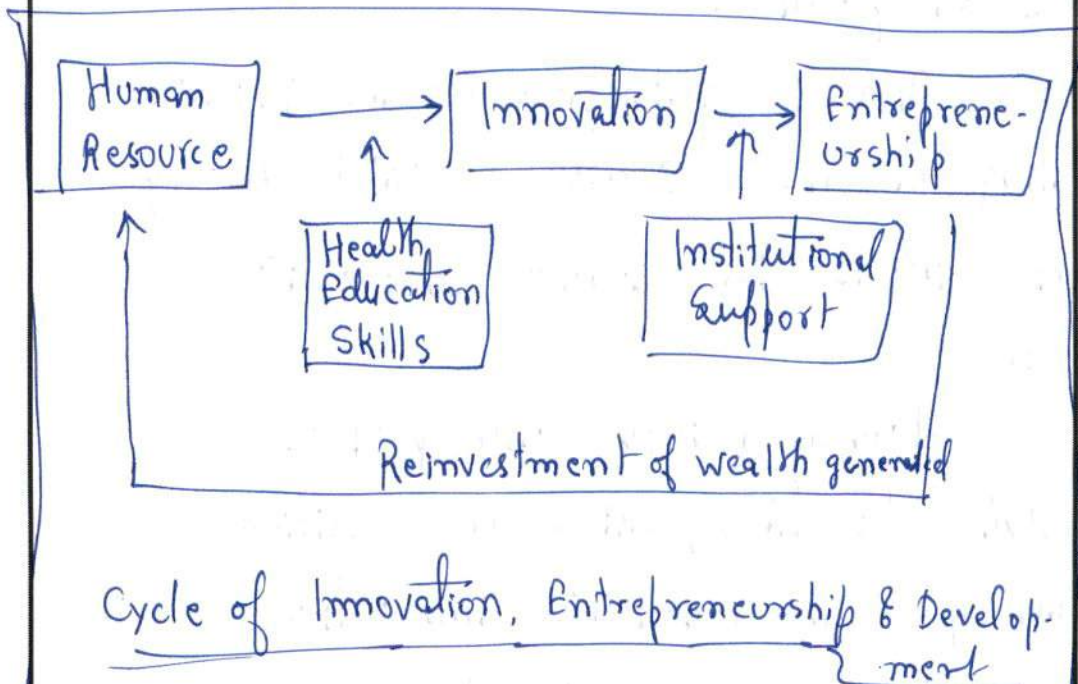 Human
Resource
Innovation
Entreprene-
urship
Health,
Education
Skills
Institutional
Support
Reinvestment of wealth generated
Cycle of Innovation, Entrepreneurship & Develop-
ment